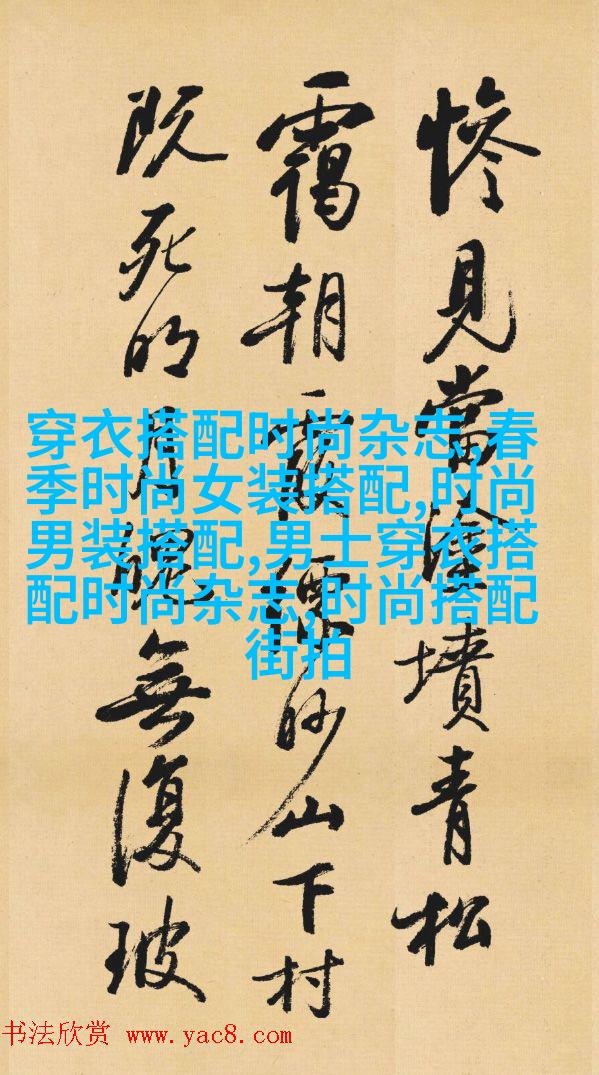 慘見當塗墳青松
靄朝霞縹眇山下村
既死明月魄無復玻
穿衣搭配时尚杂志,春
季时尚女装搭配,时尚
男装搭配,男士穿衣搭
配时尚杂志,时尚搭配
街拍
书法欣赏 www.yac8.com